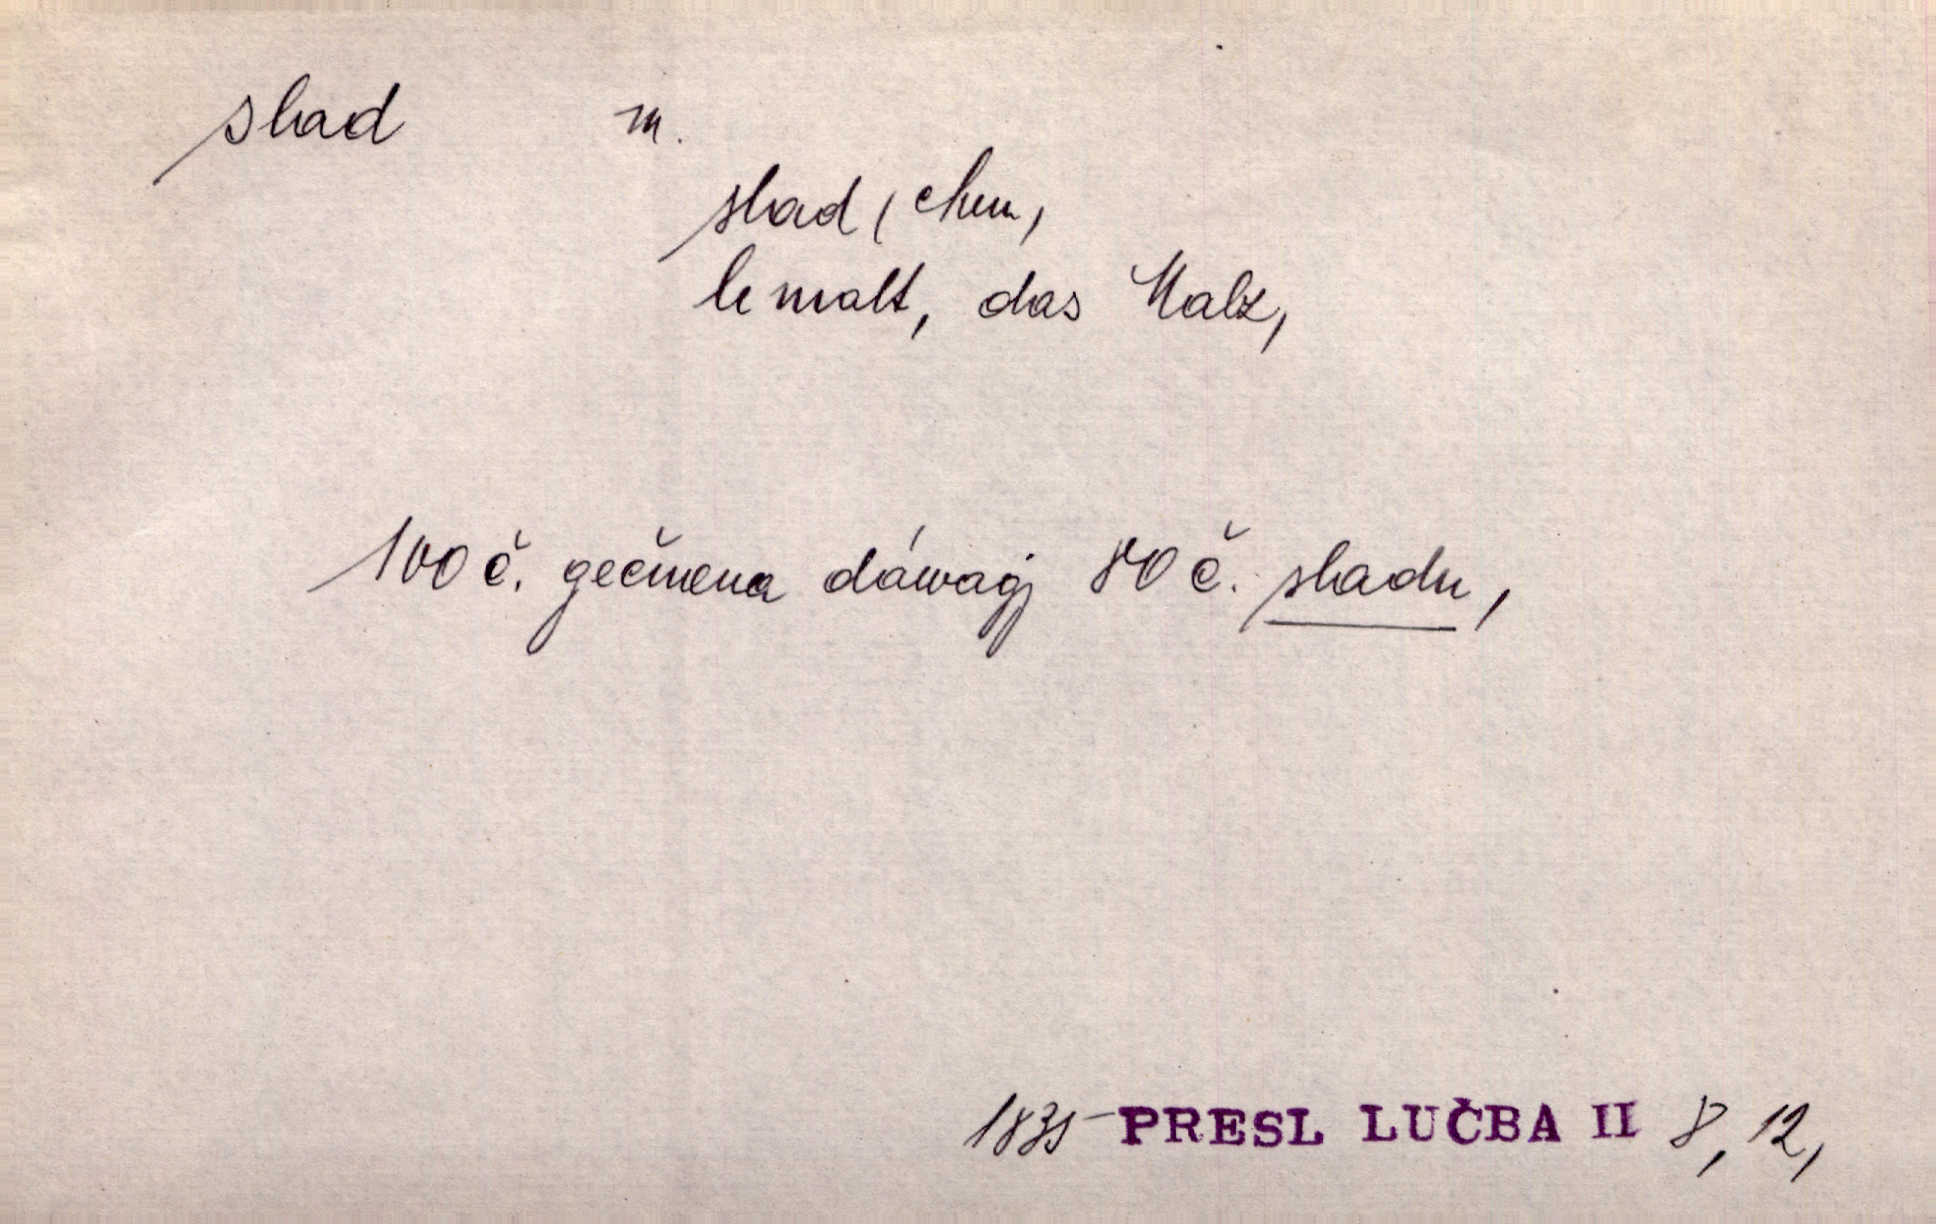 slad m.
slad, chem,
le malt, das Malz,
100 č. gečmena dáwagj 80 č. sladu,
1835 PRESL LUČBA II 8, 12,